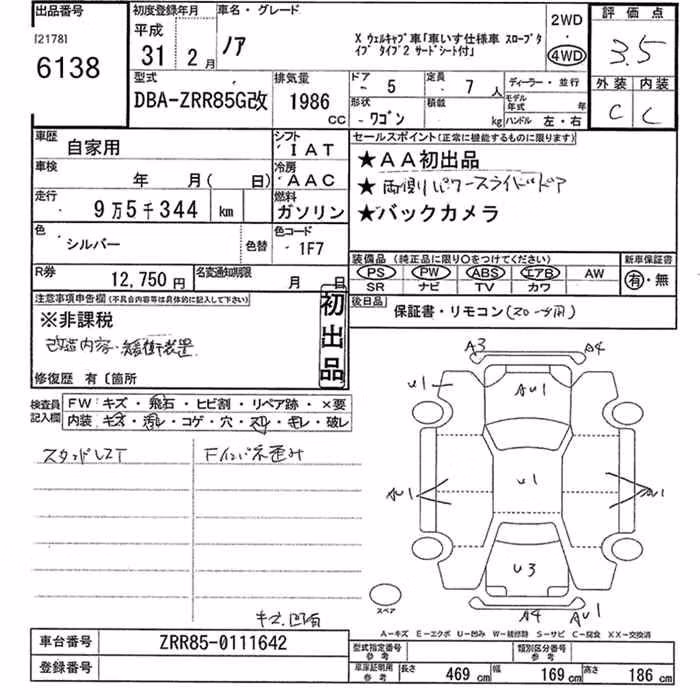 出品番号
[2178]
6138
初度登録年月
平成
31年 2月
車名・グレード
ノア
X ウェルキャブ車「車いす仕様車 スロープタ
イプ タイプ2 サードシート付」
2WD
・
4WD
評価点
3.5
外装 内装
C C
型式
DBA-ZRR85G改
排気量
1986
CC
ドア
5
定員
7人
形状
ワゴン
積載
kg
ディーラー・並行
モデル年式 年
ハンドル 左・右
車歴
自家用
シフト
IAT
車検
年 月( 日)
冷房
AAC
走行
9万5千344 km
燃料
ガソリン
色
シルバー
色替
色コード
1F7
R券
12,750円
名変通知期限
月 日
セールスポイント(正常に機能するものに限ります)
★AA初出品
★両側パワースライドドア
★バックカメラ
装備品(純正品に限り○をつけてください)
PS PW ABS エアB AW
SR ナビ TV カワ
新車保証書
有・無
後日品
保証書・リモコン(ZO-)
注意事項申告欄(不具合内容等は具体的に記入して下さい)
※非課税
改造内容・緩衝装置
修復歴 有〔箇所
初出品
検査員記入欄
FW:キズ・飛石・ヒビ割・リペア跡・×要
内装:キズ・汚レ・コゲ・穴・スレ・キレ・破レ
スタッドレスT
Fインパネ歪み
キズ、凹有
A3 A4
U1
AU1
AU1 U1 AU1
U3
A4 AU1
スペア
A-キズ E-エクボ U-凹み W-補修跡 S-サビ C-腐食 XX-交換済
車台番号
ZRR85-0111642
登録番号
型式指定番号
参考
類別区分番号
参考
車庫証明用
参考
長さ 469 cm 幅 169 cm 高さ 186 cm